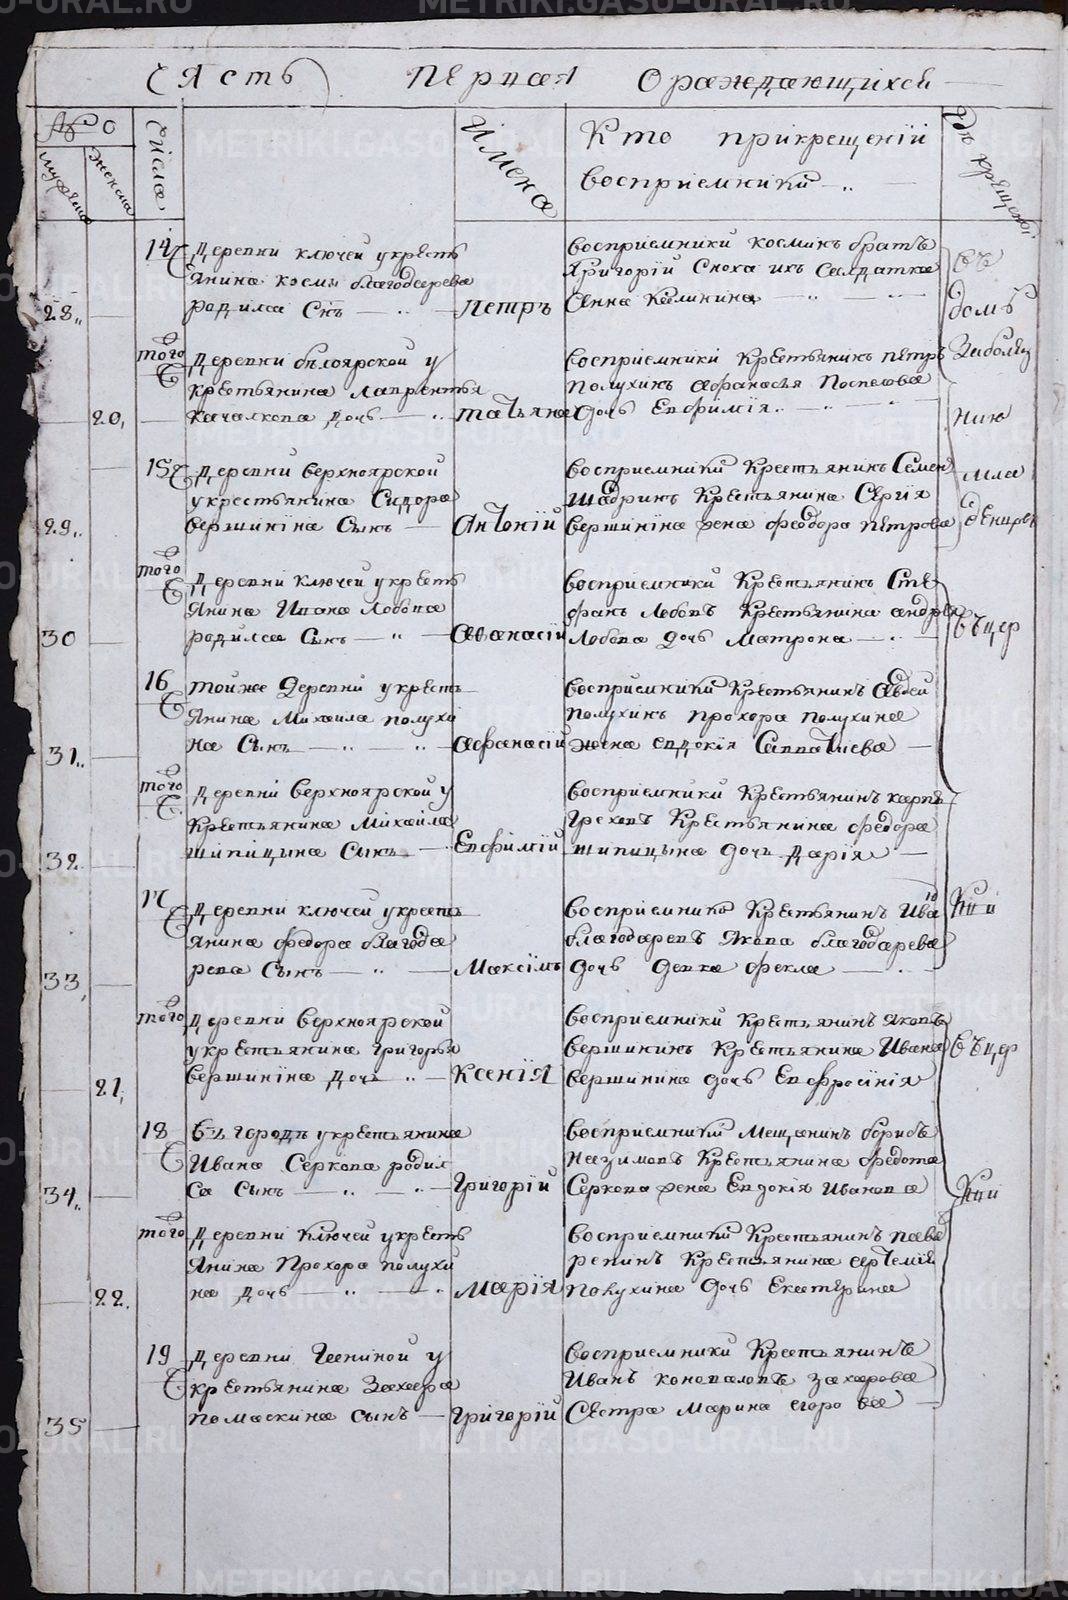 Часть Первая Ораждающихся
№
мужеска
женска
числа
Имена
Кто прикрещенїи
восприемники
Где крещены
28
14
Деревни ключей укресть
янина космы благодарева
родился Снъ
Петръ
восприемники косминъ братъ
Григорїй Сноха ихъ Салдатка
Анна Калинина
20
того
Деревни белоярской у
крестьянина лаврентья
качалкова дочь
татьяна
восприемники крестьянинъ петръ
полухинъ афанасья Поспелова
дочь Евфимїя
въ
домѣ
Заболез
нию
мла
денцовъ
29
15
Деревни верхноярской
укрестьянина Сидора
вершинїна Сынъ
Антонїй
восприемники Крестьянинъ Семен
шадринъ Крестьянина Сергїя
вершинїна жена феодора петрова
30
того
Деревни ключей укресть
янина Ивана Лобова
родился Сынъ
Афанасїй
восприемники Крестьянинъ Сте
фанъ Лобовъ Крестьянина андрея
Лобова дочь Матрона
31
16
тойже Деревни укресть
янина Михаила полухи
на Сынъ
Афанасїй
восприемники Крестьянинъ Авдей
полухинъ прохора полухина
жена евдокїя Савватиева
въ цер
32
того
Деревни верхноярской у
Крестьянина Михайла
шипицына Сынъ
Евфимїй
восприемники Крестьянинъ карпъ
Греховъ Крестьянина федора
шипицына дочь Дарїя
33
17
Деревни ключей укресть
янина федора благода
рева Сынъ
Максїмъ
восприемники Крестьянинъ Ива
благодаревъ Якова благодарева
дочь девка фекла
кви
21
того
Деревни верхноярской
укрестьянина григорья
вершинїна дочь
Ксенїя
восприемники Крестьянинъ яковъ
вершининъ Крестьянина Ивана
вершинина дочь Евфросїнїя
въ цер
34
18
въ городѣ укрестьянина
Ивана Серкова родил
ся Сынъ
Григорїй
восприемники Мещанинъ борисъ
Назимовъ Крестьянина федота
Серкова жена Евдокїя Иванова
кви
22
того
Деревни Ключей укресть
янина Прохора полухи
на дочь
Марїя
восприемники Крестьянинъ
репинъ Крестьянина артемїя
полухина дочь Екатерина
35
19
Деревни у
крестьянина Захара
помаскина сынъ
Григорїй
восприемники Крестьянинъ
Иванъ коноваловъ захарова
Сестра Марина егоро ва
METRIKI.GASO-URAL.RU